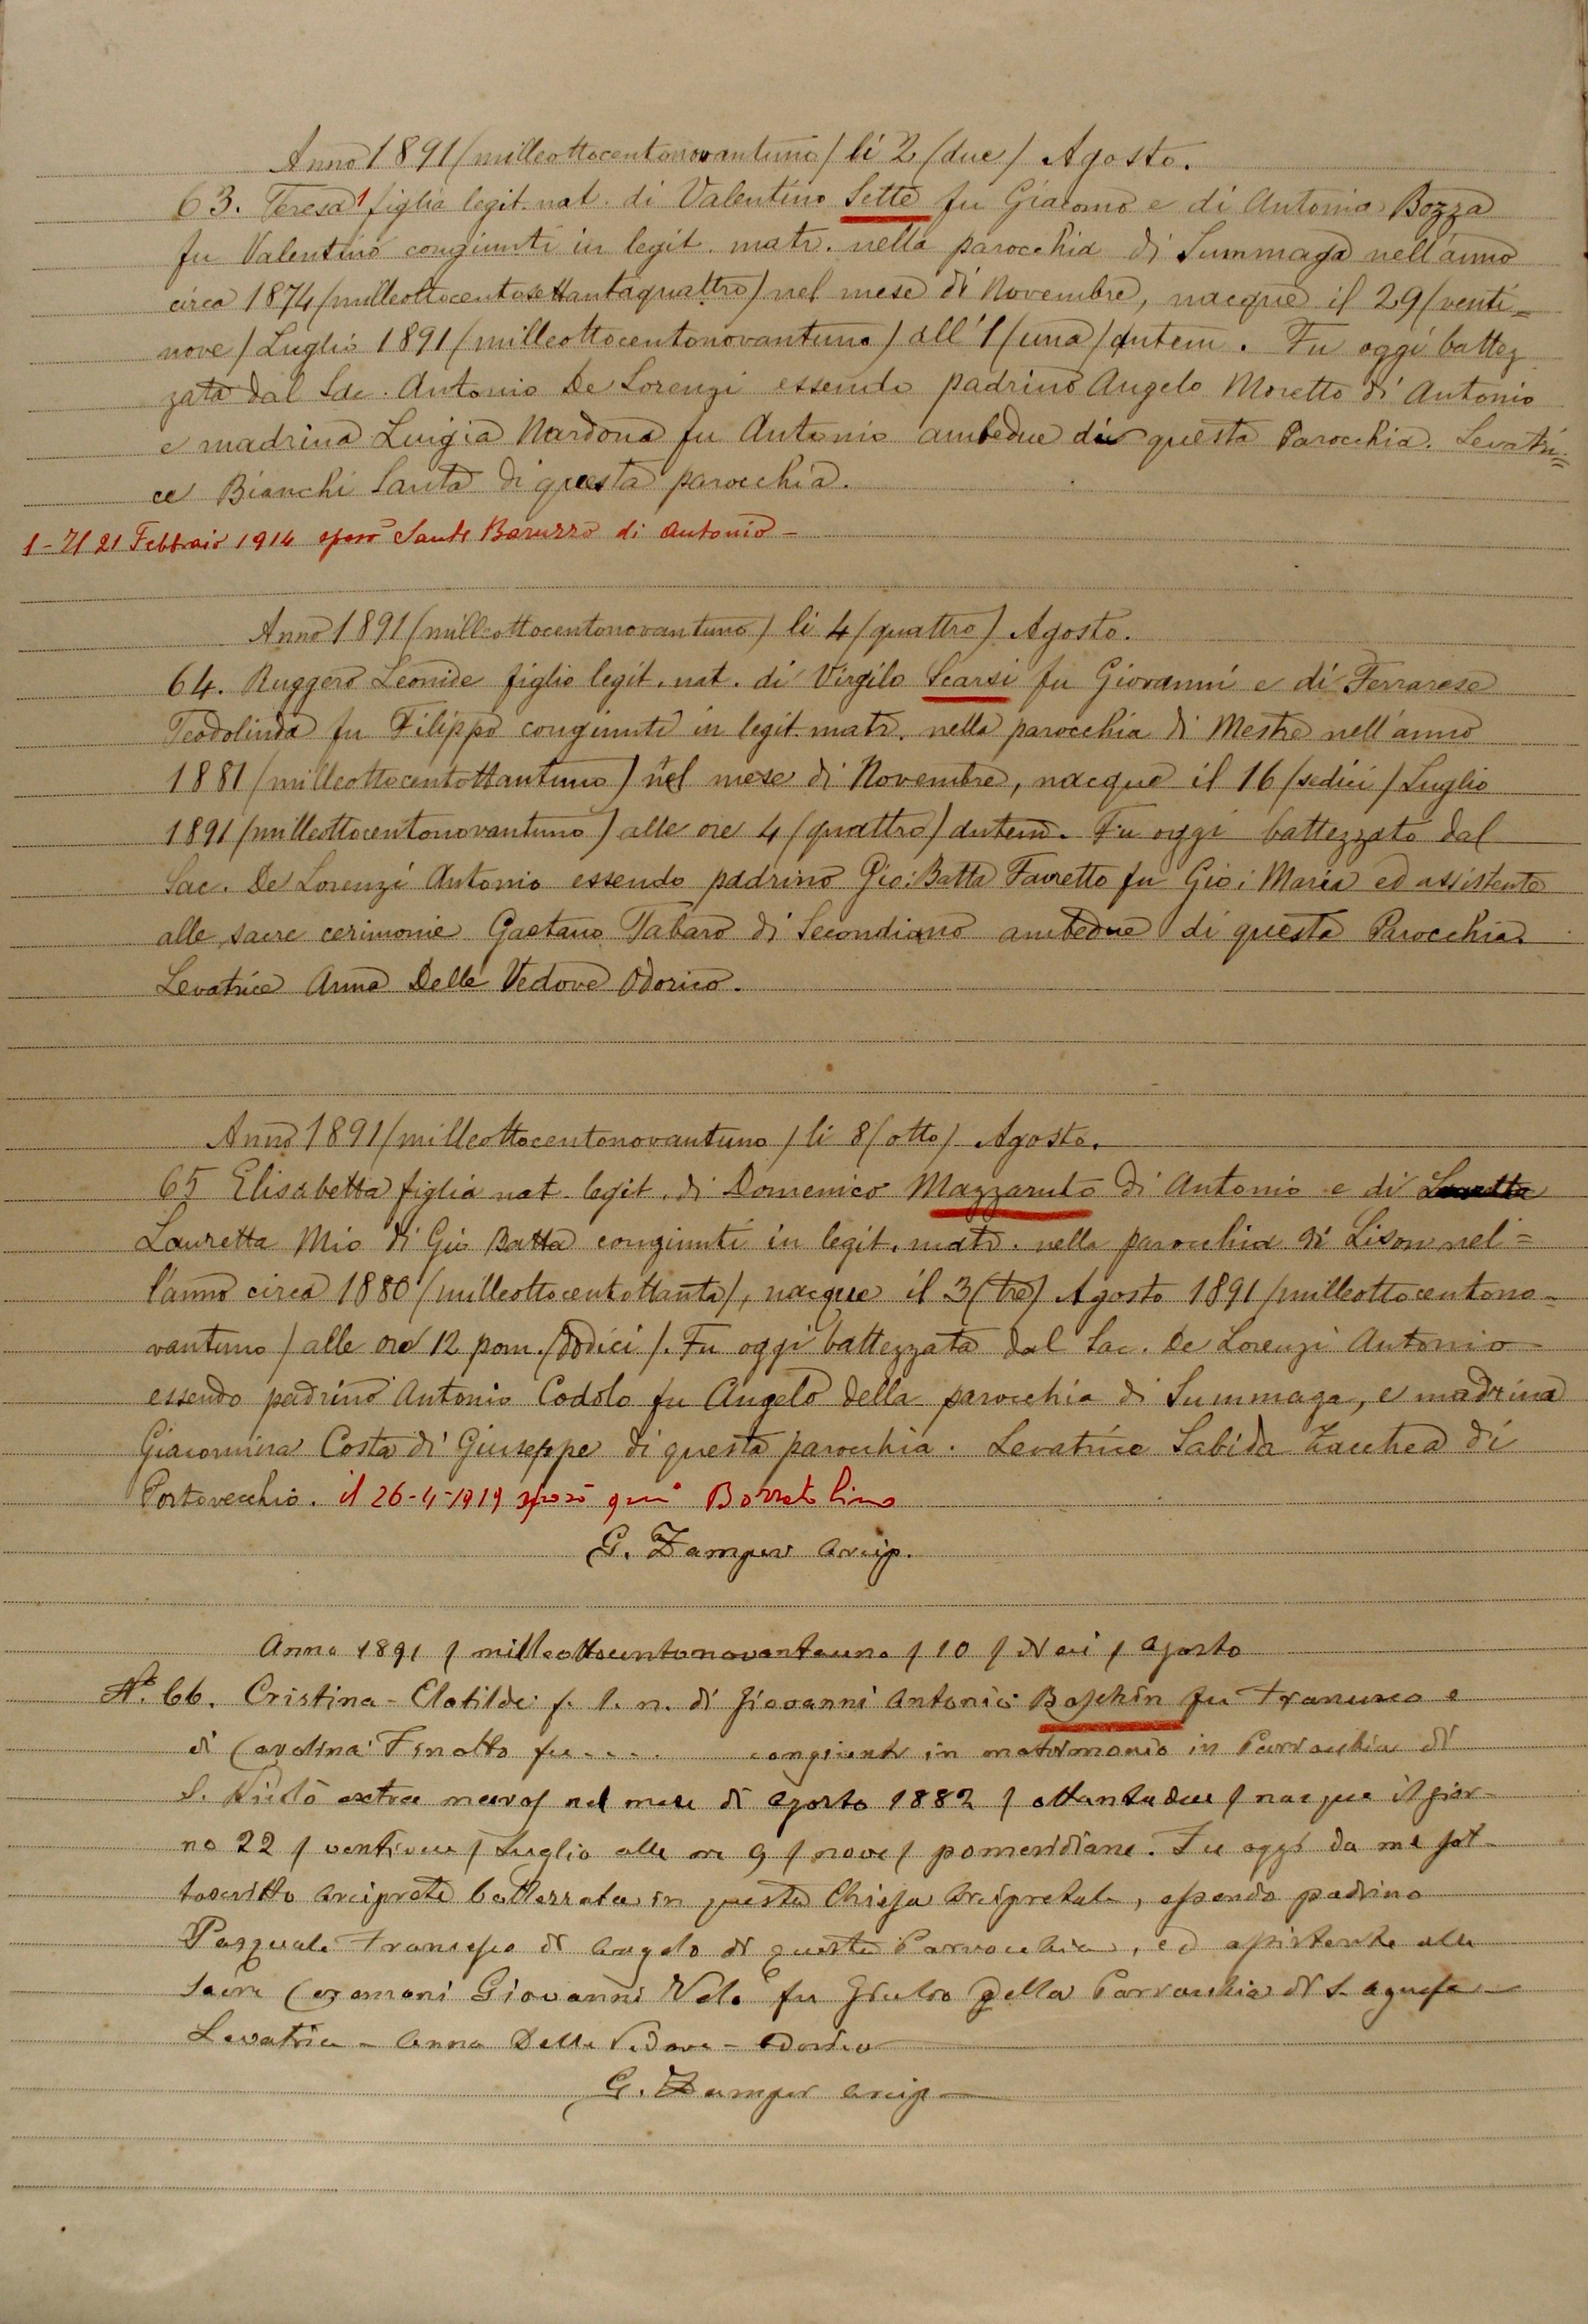 Anno 1891 (milleottocentonovantuno) li 2 (due) Agosto.
63. Teresa¹ figlia legit. nat. di Valentino Sette fu Giacomo e di Antonia Bozza
fu Valentino congiunti in legit. matr. nella parocchia di Summaga nell'anno
circa 1874 (milleottocentosettantaquattro) nel mese di Novembre, nacque il 29 (venti=
nove) Luglio 1891 (milleottocentonovantuno) all'1 (una) antem. Fu oggi battez
zata dal Sac. Antonio De Lorenzi essendo padrino Angelo Moretto di Antonio
e madrina Luigia Nardona fu Antonio ambedue di questa Parocchia. Levatri=
ce Bianchi Santa di questa parocchia.
1 - Il 21 Febbraio 1914 sposò Sante Baruzzo di Antonio -
Anno 1891 (milleottocentonovantuno) li 4 (quattro) Agosto.
64. Ruggero Leonide figlio legit. nat. di Virgilo Scarsi fu Giovanni e di Ferrarese
Teodolinda fu Filippo congiunti in legit. matr. nella parocchia di Mestre nell'anno
1881 (milleottocentottantuno) nel mese di Novembre, nacque il 16 (sedici) Luglio
1891 (milleottocentonovantuno) alle ore 4 (quattro) antem. Fu oggi battezzato dal
Sac. De Lorenzi Antonio essendo padrino Gio: Batta Favretto fu Gio: Maria ed assistente
alle sacre cerimonie Gaetano Tabaro di Secondiano ambedue di questa Parocchia.
Levatrice Anna Delle Vedove Odorico.
Anno 1891 (milleottocentonovantuno) li 8 (otto) Agosto.
65 Elisabetta figlia nat. legit. di Domenico Mazzaruto di Antonio e di
Lauretta Mio di Gio Batta congiunti in legit. matr. nella parocchia di Lison nel=
l'anno circa 1880 (milleottocentottanta), nacque il 3 (tre) Agosto 1891 (milleottocentono=
vantuno) alle ore 12 pom. (dodici). Fu oggi battezzata dal Sac. De Lorenzi Antonio
essendo padrino Antonio Codolo fu Angelo della parocchia di Summaga, e madrina
Giacomina Costa di Giuseppe di questa parocchia. Levatrice Sabida Zacchea di
Portovecchio. il 26-4-1919 sposò qui Lino
G. Zamper Arcip.
Anno 1891 (milleottocentonovantauno) 10 (Dieci) Agosto
N.° 66. Cristina-Clotilde f. l. n. di Giovanni Antonio Boschin fu Francesco e
di Carolina Finotto fu.... congiunti in matrimonio in Parrocchia di
S. Nicolò extra muros nel mese di Agosto 1882 (ottantadue) nacque il gior-
no 22 (ventidue) Luglio alle ore 9 (nove) pomeridiane. Fu oggi da me sot-
toscritto Arciprete battezzata in questa Chiesa Arcipretale, essendo padrino
Pasquale Francesco di Angelo di questa Parrocchia, ed assistente alle
Sacre Ceremoni Giovanni fu Giulio della Parrocchia di S. Agnese -
Levatrice - Anna Delle Vedove - Odorico
G. Zamper Arcip -